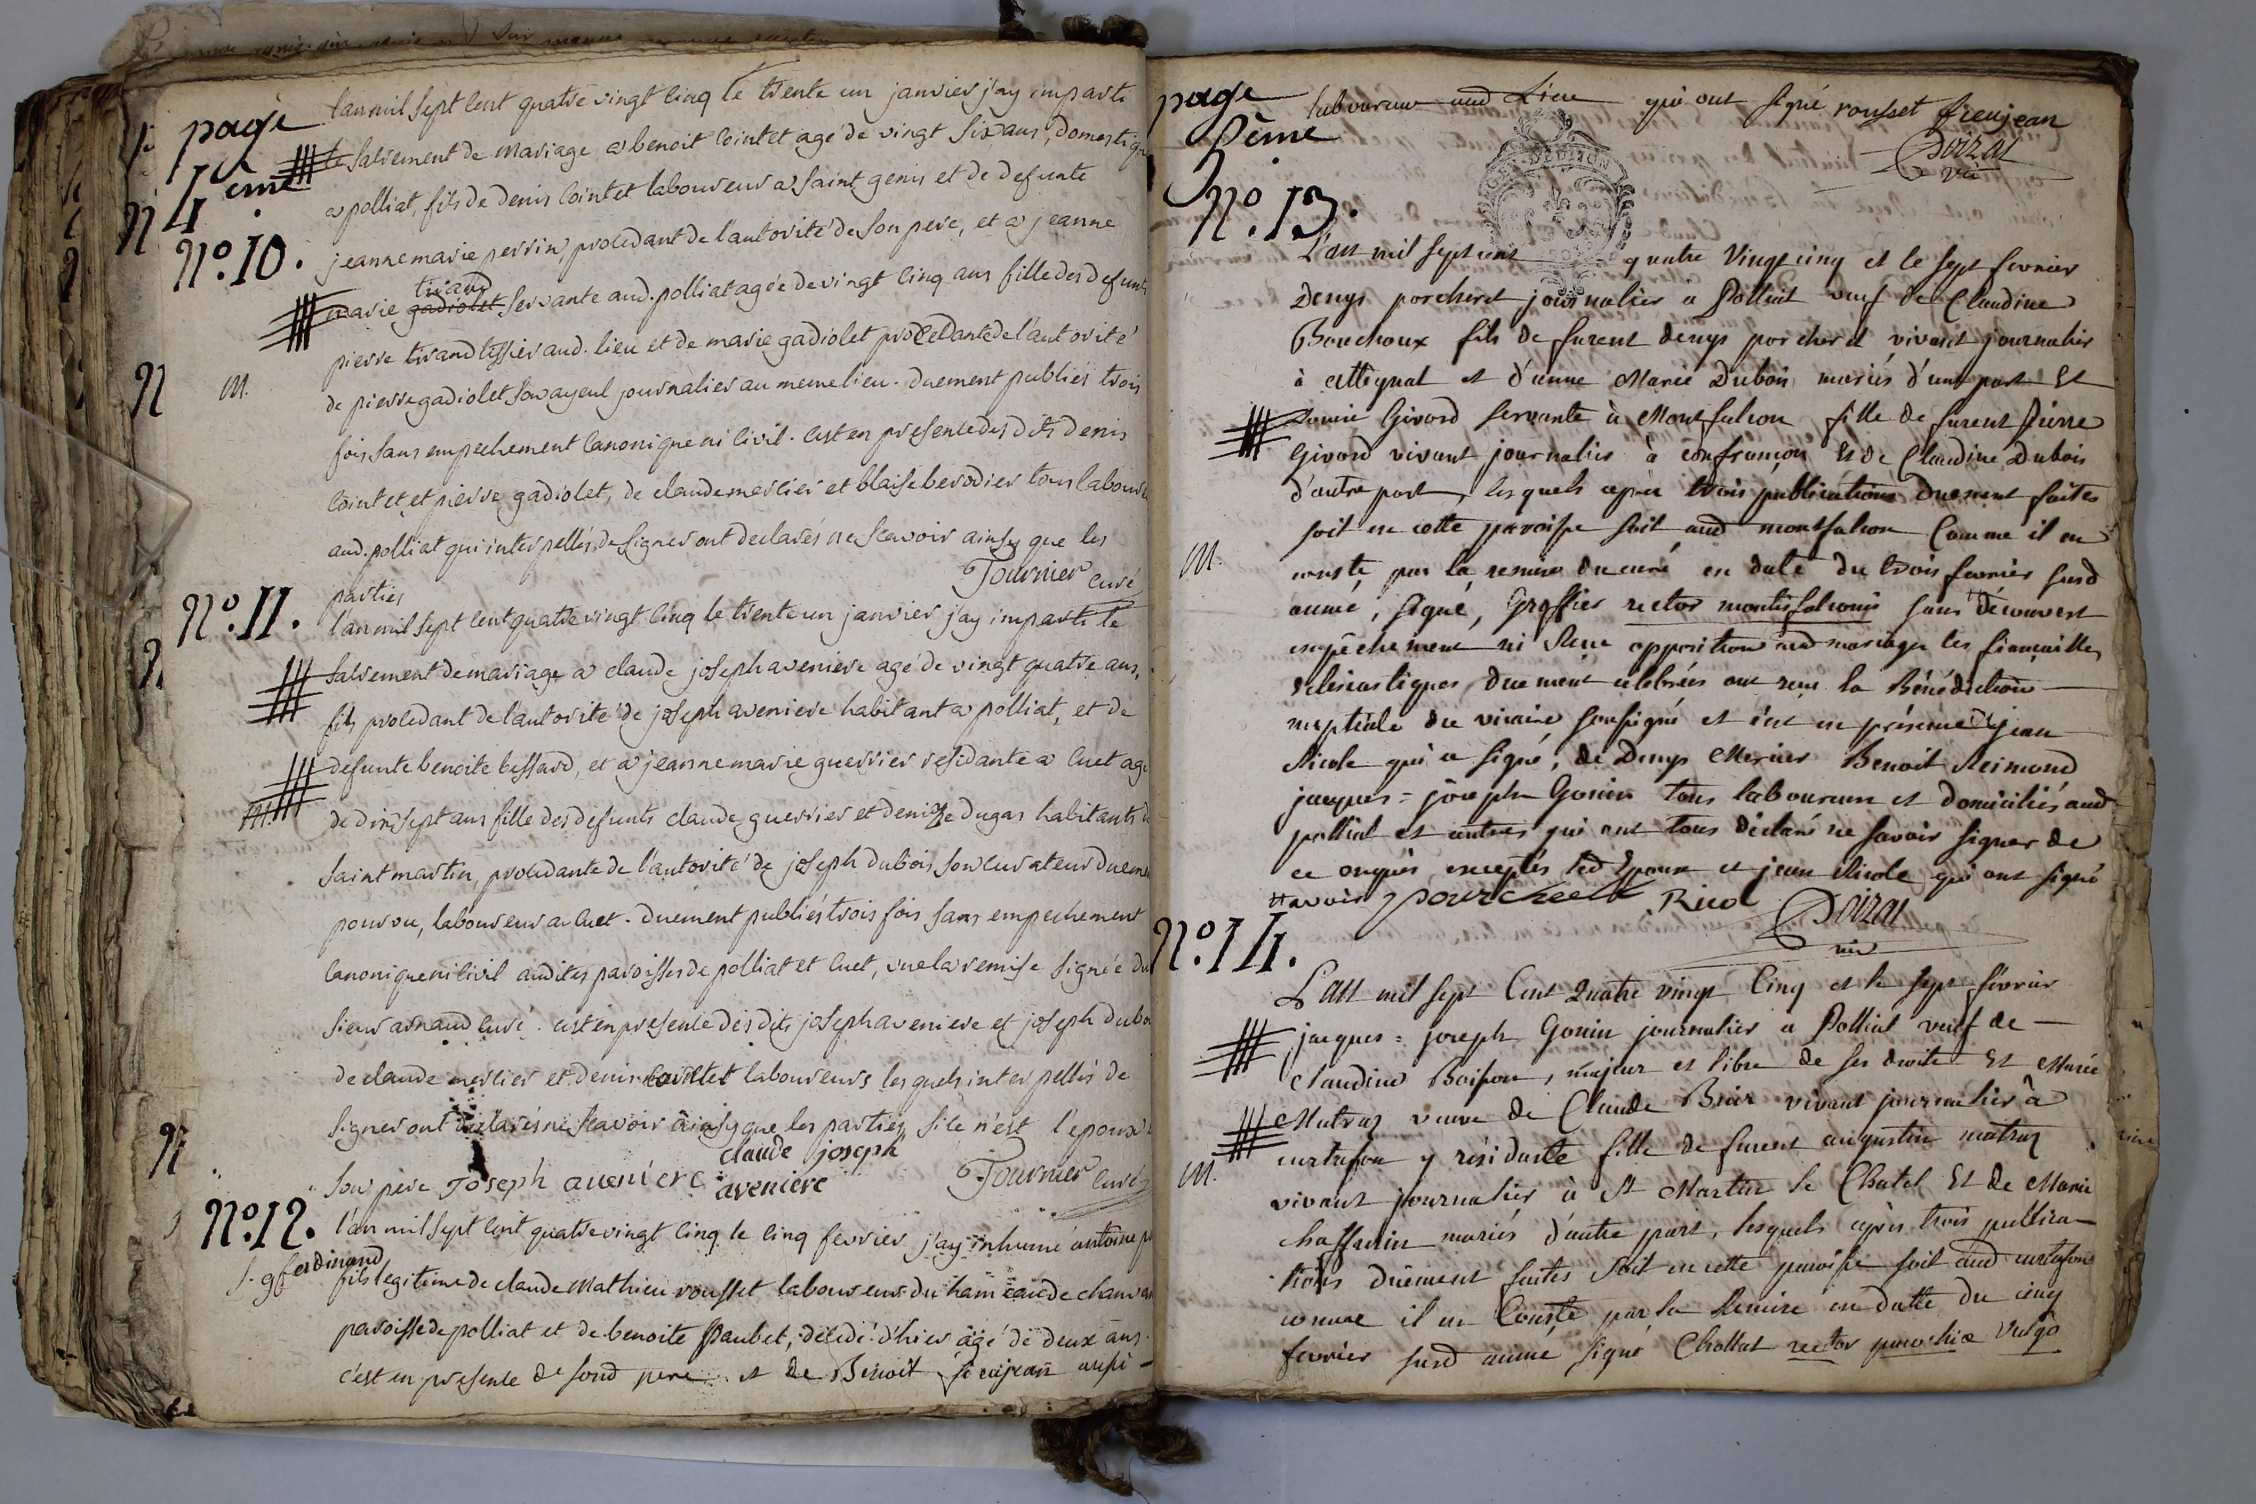 page
4ème
l'an mil sept cent quatre vingt cinq le trente un janvier jay imparti
le sacrement de mariage a benoit cointet agé de vingt six ans, domestique
a polliat, fils de denis cointet laboureur a saint genis et de defunte
N.º 10.
jeanne marie perrin, procedant de l'autorité de son pere, et a jeanne
tirand
marie gadiolet servante aud. polliat agée de vingt cinq ans fille des defunts
pierre tirand tissier aud. lieu et de marie gadiolet procedante de l'autorité
M.
de pierre gadiolet son ayeul journalier au meme lieu. duement publiés trois
fois sans empechement canonique ni civil. c'est en presence des dits denis
cointet et pierre gadiolet, de claude merlier et blaise berodier tous laboureurs
aud. polliat qui interpellés de signer ont declarés ne scavoir ainsy que les
parties
Tournier curé
N.º 11.
l'an mil sept cent quatre vingt cinq le trente un janvier jay imparti le
sacrement de mariage a claude joseph aveniere agé de vingt quatre ans,
fils procedant de l'autorité de joseph aveniere habitant a polliat, et de
defunte benoite bessard, et a jeanne marie guerrier residante a cuet agée
M.
de dix sept ans fille des defunts claude guerrier et denize dugas habitants de
saint martin, procedante de l'autorité de joseph dubois son curateur duement
pourvu, laboureur a cuet. duement publiés trois fois sans empechement
canonique ni civil audites paroisses de polliat et cuet, vue la remise signée du
sieur arnaud curé. c'est en presence des dits joseph aveniere et joseph dubois
de claude merlier et denis cointet laboureurs lesquels interpellés de
signer ont declarés ne scavoir ainsy que les parties si ce n'est l'epoux
son pere Joseph aveniere claude joseph aveniere Tournier curé
N.º 12.
l'an mil sept cent quatre vingt cinq le cinq fevrier j'ay inhumé antoine
ferdinand
fils legitime de claude Mathieu rousset laboureur du hameau de
paroisse de polliat et de benoite Paubet, decedé d'hier agé de deux ans.
c'est en presence de sond pere et de Benoit frerejean aussi
page
5ème
laboureur aud Lieu qui ont signé rousset frerejean
Doizas
vic
N.º 13.
L'an mil sept cent quatre vingt cinq et le sept fevrier
Denys porcheret journalier a Polliat veuf de Claudine
Bouchoux fils de furent denys porcheret vivant journalier
à Attignat et d'anne Marie Dubois mariés d'une part Et
Girard servante à Montfalcon fille de furent pierre
Girard vivant journalier à confrançon Et de Claudine Dubois
d'autre part, lesquels après trois publications duement faites
soit en cette paroisse soit aud montfalcon Comme il en
M.
conste par la remise du curé en date du trois fevrier susd
année, signé, Greffier rector montisfalconis sans decouvert
empêchement ni sceue opposition aud mariage les fiançailles
eclesiastiques duement celebrées ont reçu la Bénédiction
nuptiale du vicaire soussigné et c'est en présence de jean
Nicole qui a signé, de Denys Merier Benoit Reimond
jacques = joseph Gonin tous laboureurs et domiciliés aud
polliat et autres qui ont tous déclaré ne savoir signer de
ce enquis exceptés led Epoux et jean Nicole qui ont signé
Doizas
vic
N.º 14.
L'an mil sept Cent Quatre vingt Cinq et le sept février
jacques = joseph Gonin journalier a Polliat veuf de
Claudine Boisson, majeur et libre de ses droits Et Marie
Mutraz veuve de Claude Brier vivant journalier à
curtafon y résidante fille de furent augustin mutraz
M.
vivant journalier à St Martin le Chatel Et de Marie
chaffanin mariés d'autre part, lesquels après trois publica-
tions duement faites soit en cette paroisse soit aud curtafon
comme il en Conste par la Remise en datte du cinq
fevrier susd année signé Chollat rector parochiæ vulgò